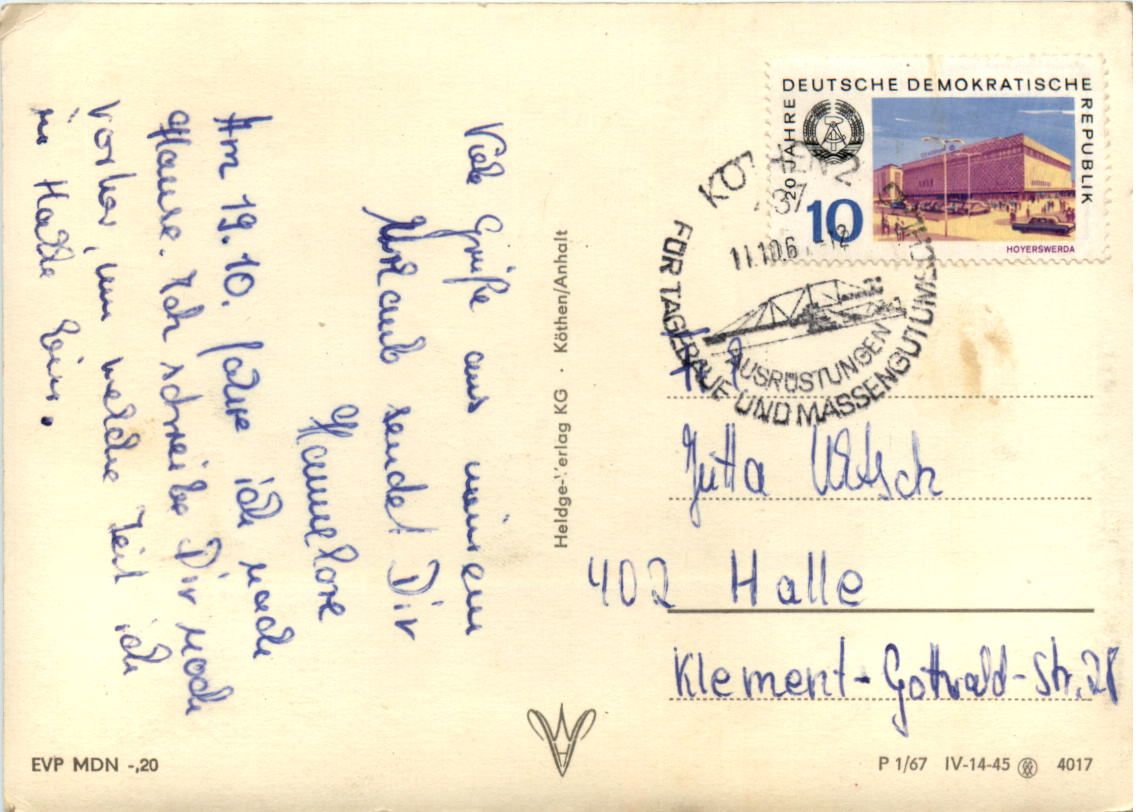 Viele Grüße aus meinem
Urlaub sendet Dir
Hannelore
Am 19.10. fahre ich nach
Hause. Ich schreibe Dir noch
vorher, um welche Zeit ich
in Halle bin.
Heldge-Verlag KG · Köthen/Anhalt
EVP MDN -,20
20 JAHRE DEUTSCHE DEMOKRATISCHE REPUBLIK
10
HOYERSWERDA
KÖTHEN 2
437
11.10.6 -12
FÜR TAGEBAUE UND MASSENGUTUMSCHLAG
AUSRÜSTUNGEN
Jutta
402 Halle
Klement-Gottwald-Str. 28
P 1/67 IV-14-45 4017